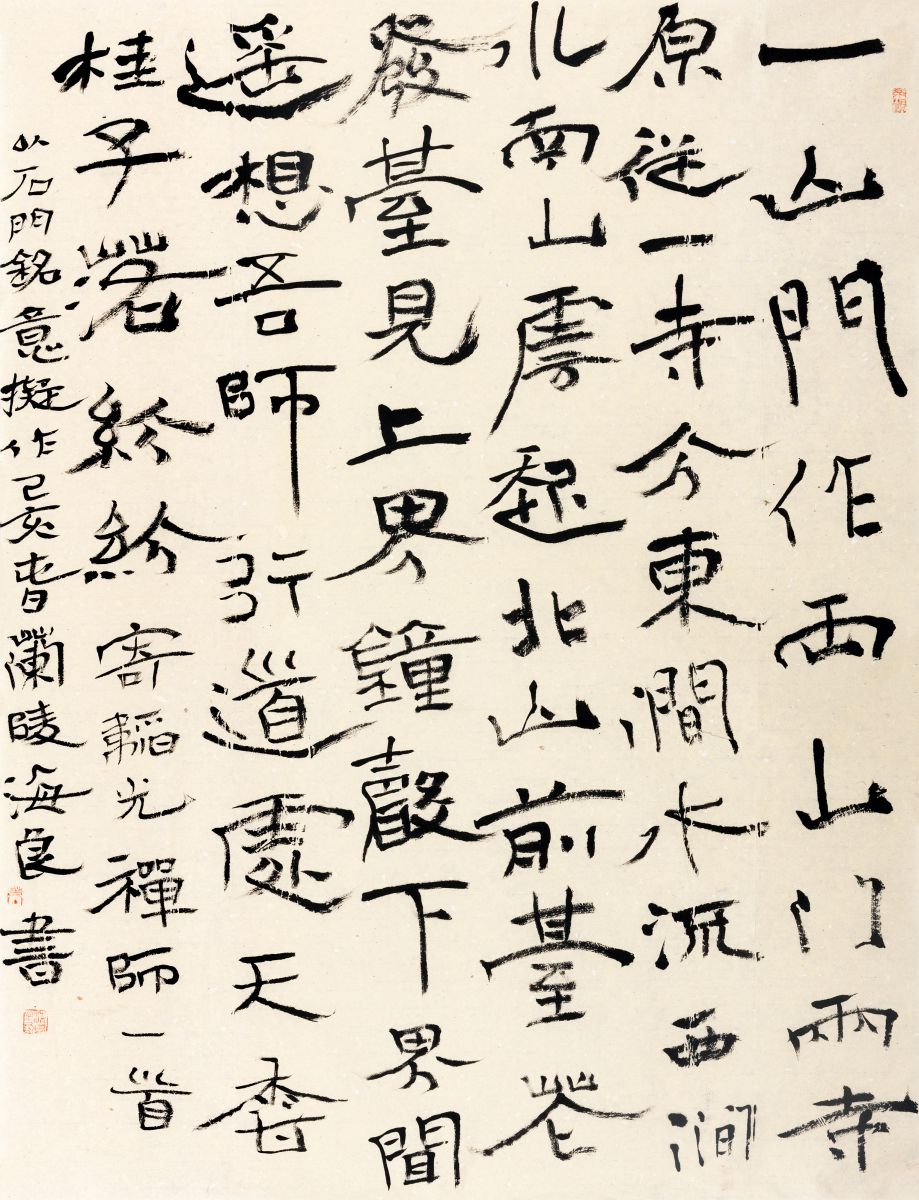 一山門作兩山门兩寺
原從一寺分東澗水流西澗
水南山雲起北山前臺花
發臺見上界鐘聲下界聞
遥想吾師行道處天香
桂子落紛紛寄韜光禪師一首
以石門銘意擬作己亥春蘭陵海良書